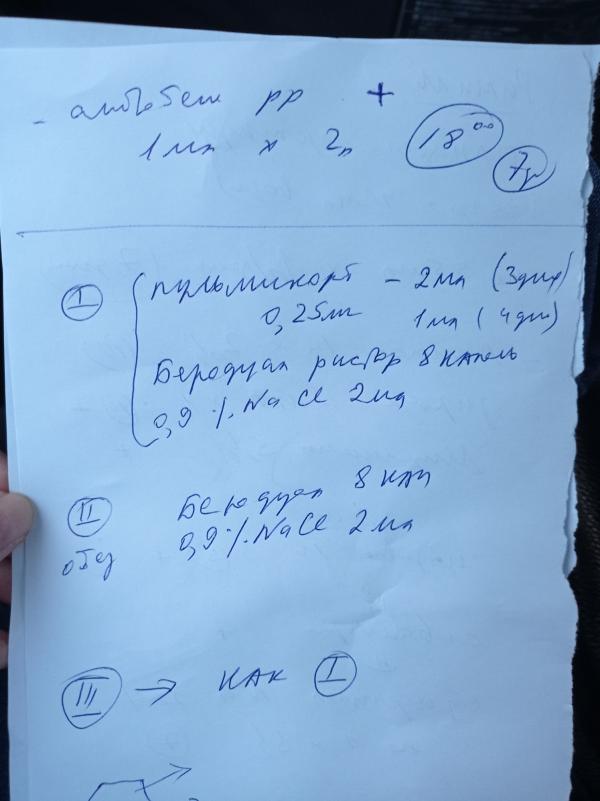 - амбобене рр +
1мл х 2р 18⁰⁰ 7д
I пульмикорт - 2мл (3дня)
0,25мг 1мл (4дня)
Беродуал раствор 8 капель
0,9 % NaCl 2мл
II Беродуал 8 кап
обед 0,9 % NaCl 2мл
III → как I